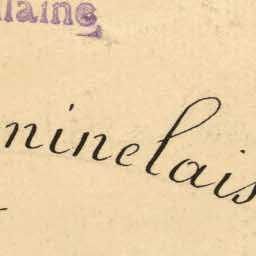 laine
ninelais